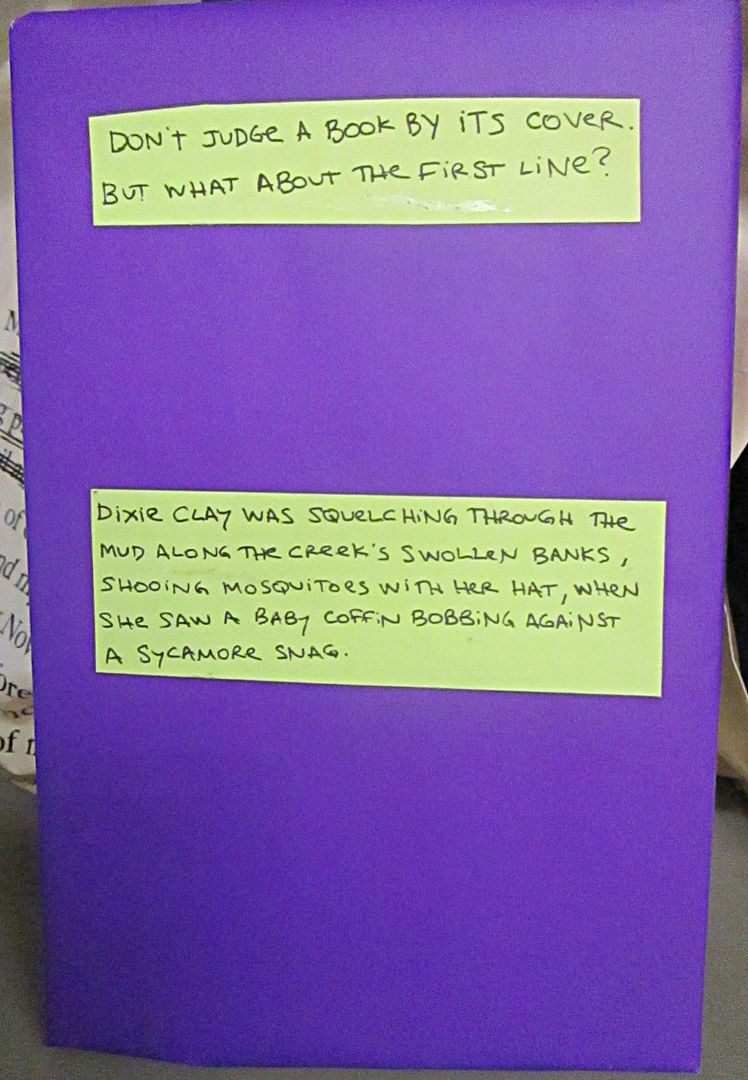 DON'T JUDGE A BOOK BY ITS COVER.
BUT WHAT ABOUT THE FIRST LINE?
DIXIE CLAY WAS SQUELCHING THROUGH THE
MUD ALONG THE CREEK'S SWOLLEN BANKS,
SHOOING MOSQUITOES WITH HER HAT, WHEN
SHE SAW A BABY COFFIN BOBBING AGAINST
A SYCAMORE SNAG.